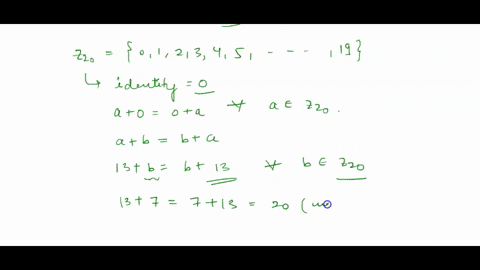 Z₂₀ = { 0, 1, 2, 3, 4, 5, - - - - , 19 }
↳ identity = 0
a + 0 = 0 + a ∀ a ∈ Z₂₀.
a + b = b + a
13 + b = b + 13 ∀ b ∈ Z₂₀
13 + 7 = 7 + 13 = 20 (